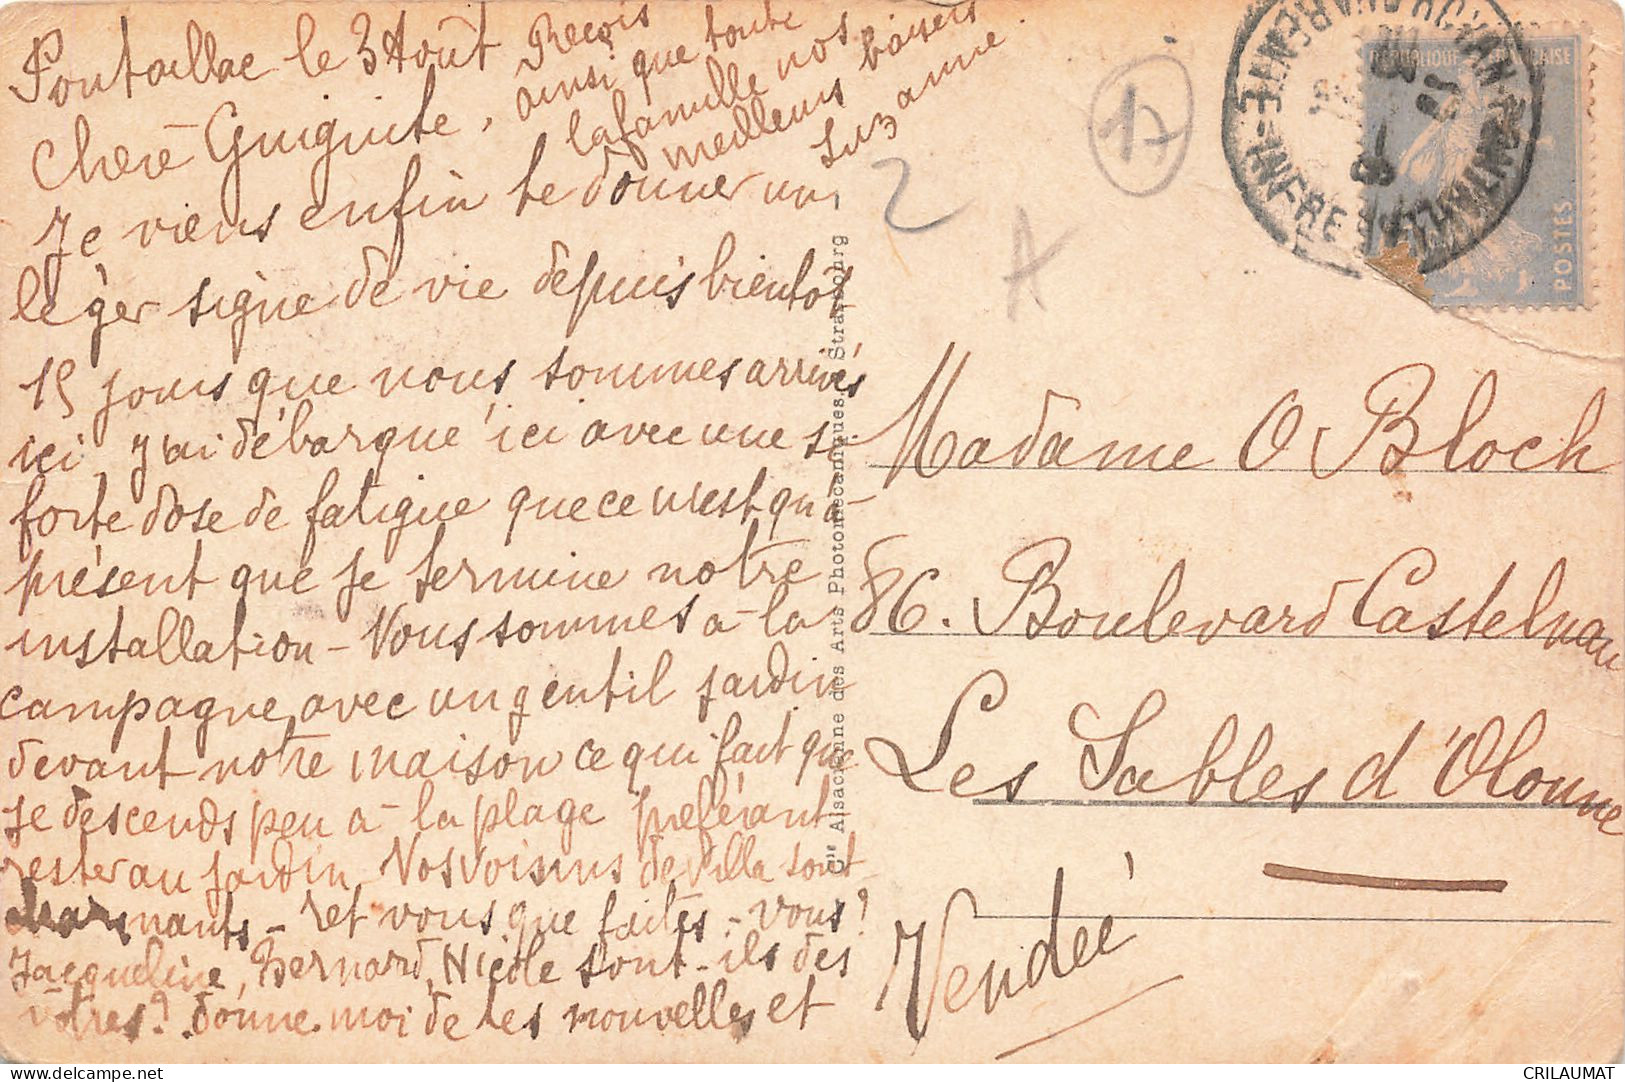 Pontaillac le 3 Août
Chère Guiguite,
Je viens enfin te donner un
léger signe de vie depuis bientôt
15 jours que nous sommes arrivés
ici, J'ai débarqué ici avec une si
forte dose de fatigue que ce n'est qu'à-
présent que je termine notre
installation - Nous sommes à-la
campagne, avec un gentil jardin
devant notre maison ce qui fait que
je descends peu à-la plage préférant
rester au jardin. Nos voisins de villa sont
charmants - et vous que faites-vous?
Jacqueline, Bernard, Nicole sont-ils des
vôtres? donne-moi de tes nouvelles et
Reçois
ainsi que toute
la famille nos
meilleurs baisers
Suzanne.
Cie Alsacienne des Arts Photomécaniques, Strasbourg
17
2
A
RÉPUBLIQUE FRANÇAISE
POSTES
Madame O Bloch
86. Boulevard Castelnau
Les Sables d'Olonne
Vendée
CRILAUMAT